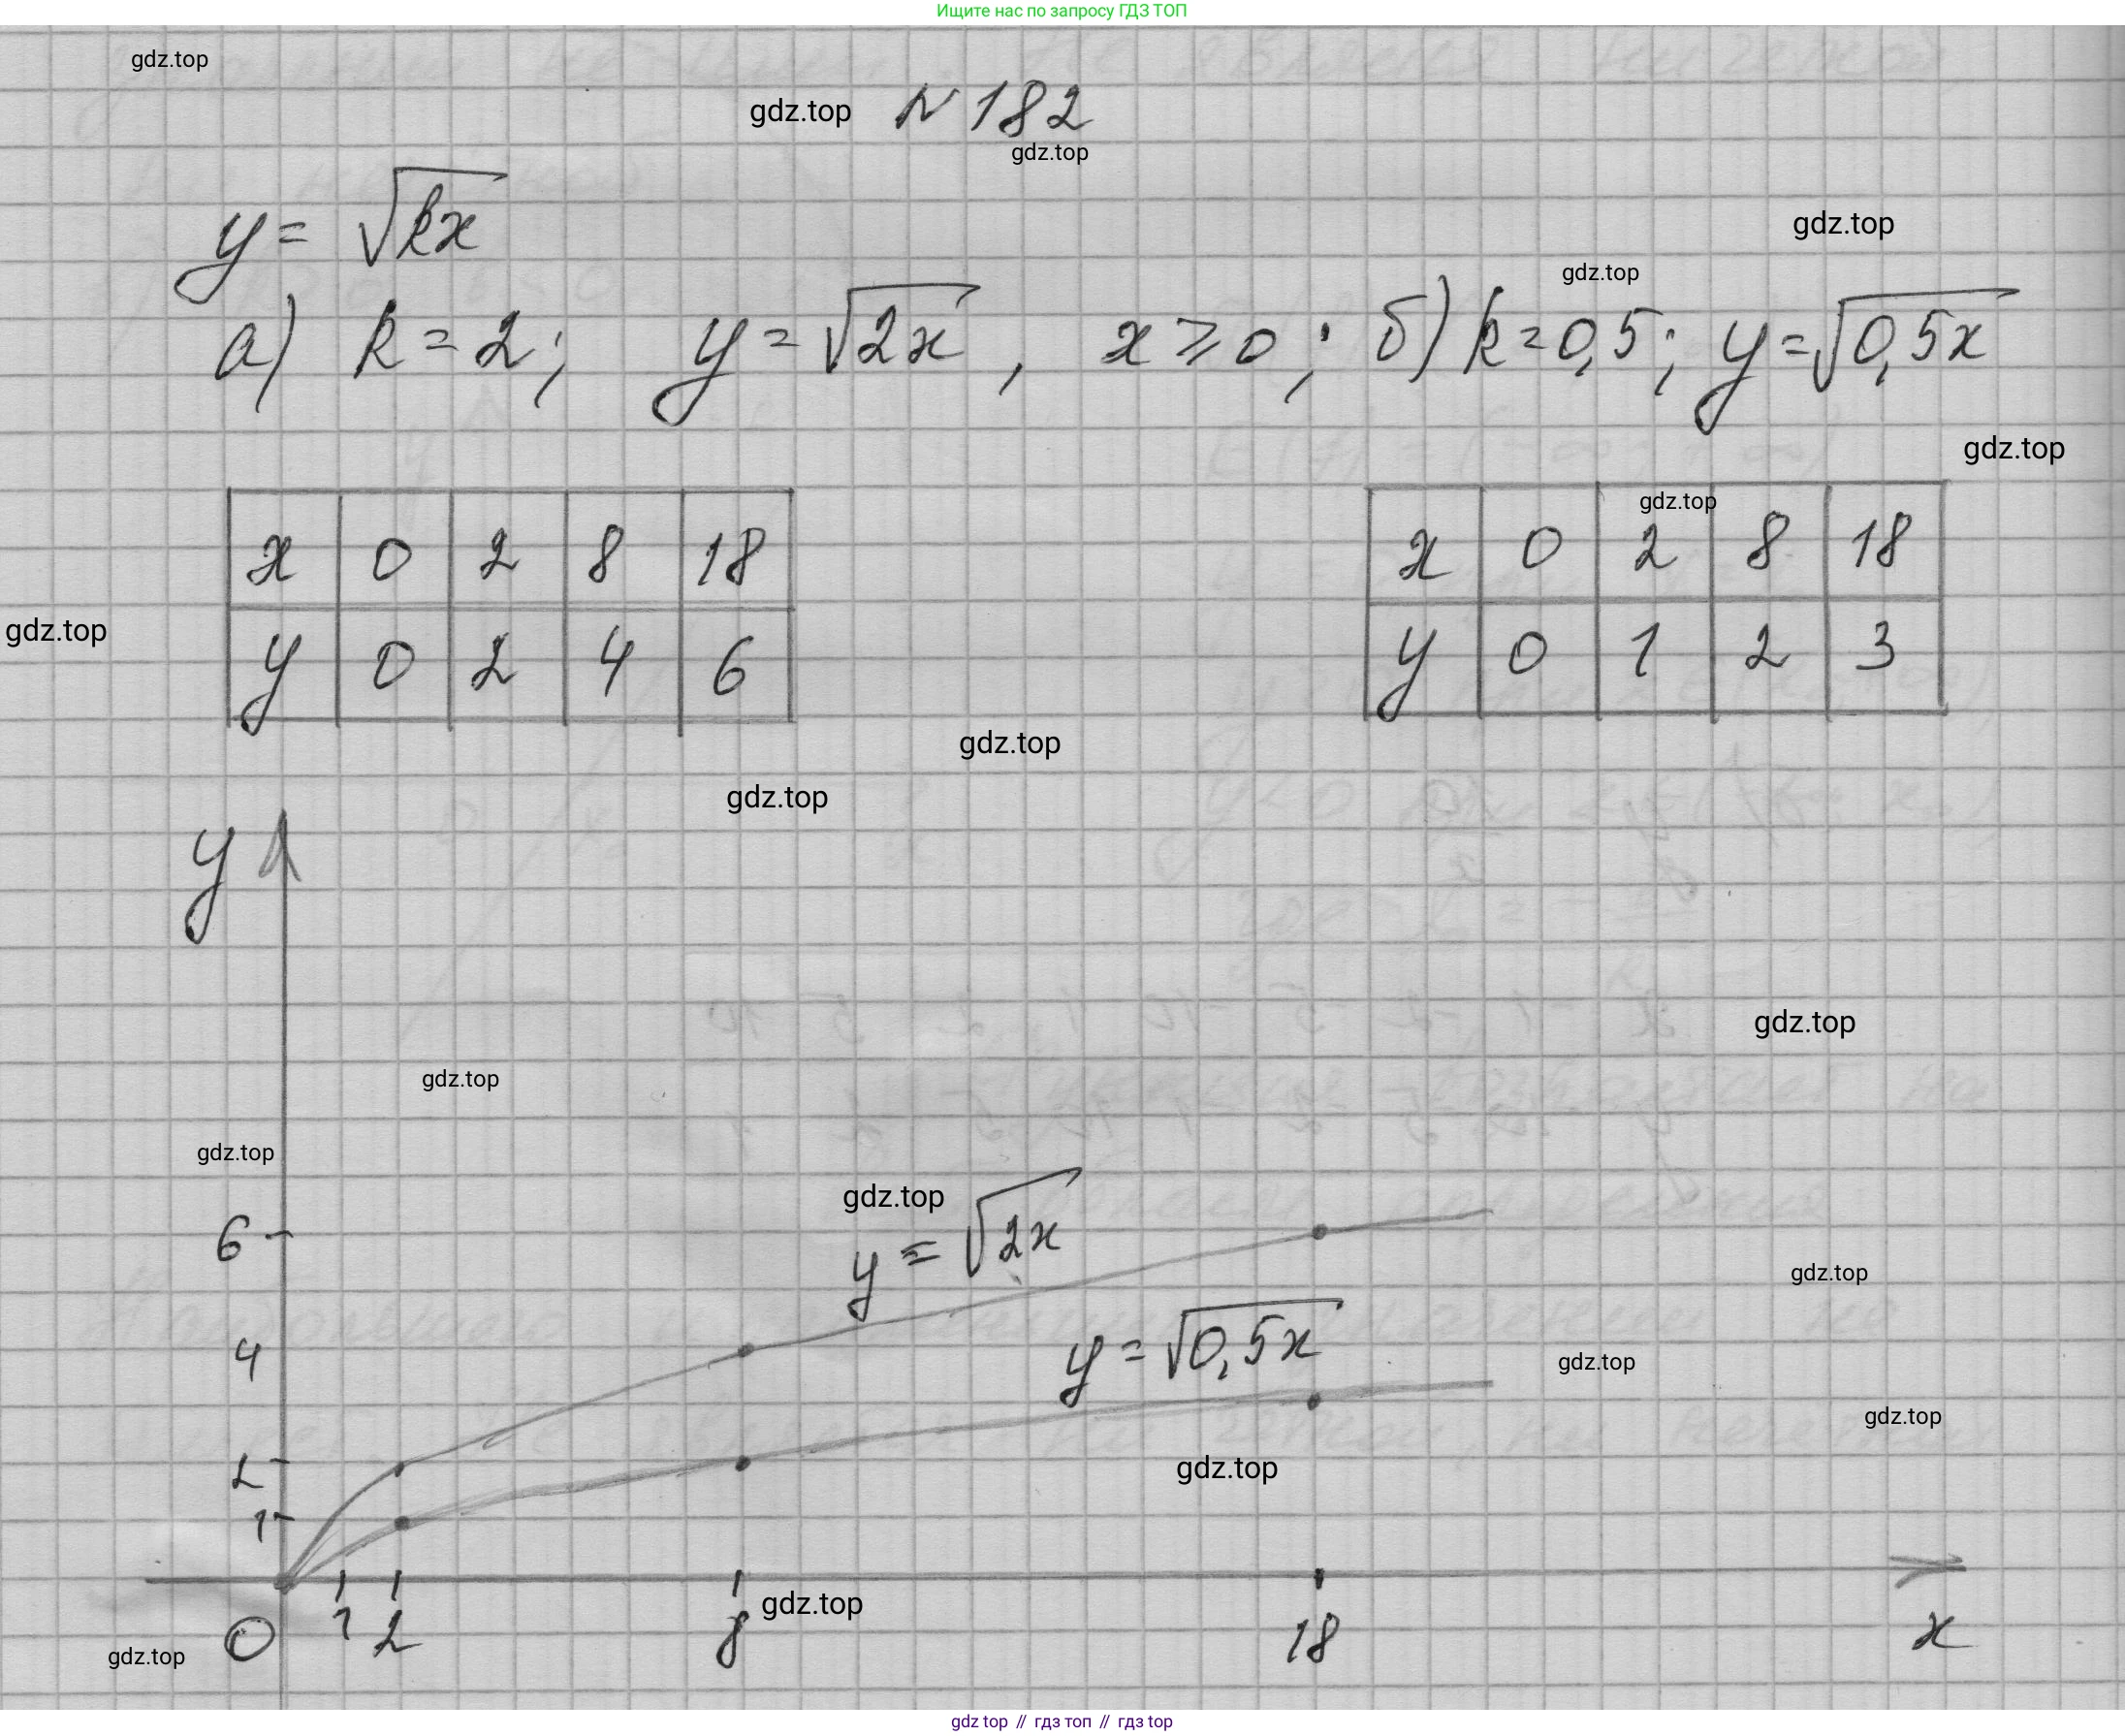 Ищите нас по запросу ГДЗ ТОП
gdz.top
gdz.top № 182
gdz.top
y = √kx
gdz.top
gdz.top
а) k = 2; y = √2x, x ⩾ 0; б) k = 0,5; y = √0,5x
gdz.top
x 0 2 8 18
y 0 2 4 6
gdz.top
x 0 2 8 18
y 0 1 2 3
gdz.top
gdz.top
gdz.top
y
gdz.top
gdz.top
gdz.top
gdz.top
y = √2x
6
gdz.top
y = √0,5x
4
gdz.top
gdz.top
2
gdz.top
1
0 1 2 8 18 x
gdz.top
gdz.top
gdz top // гдз топ // гдз top